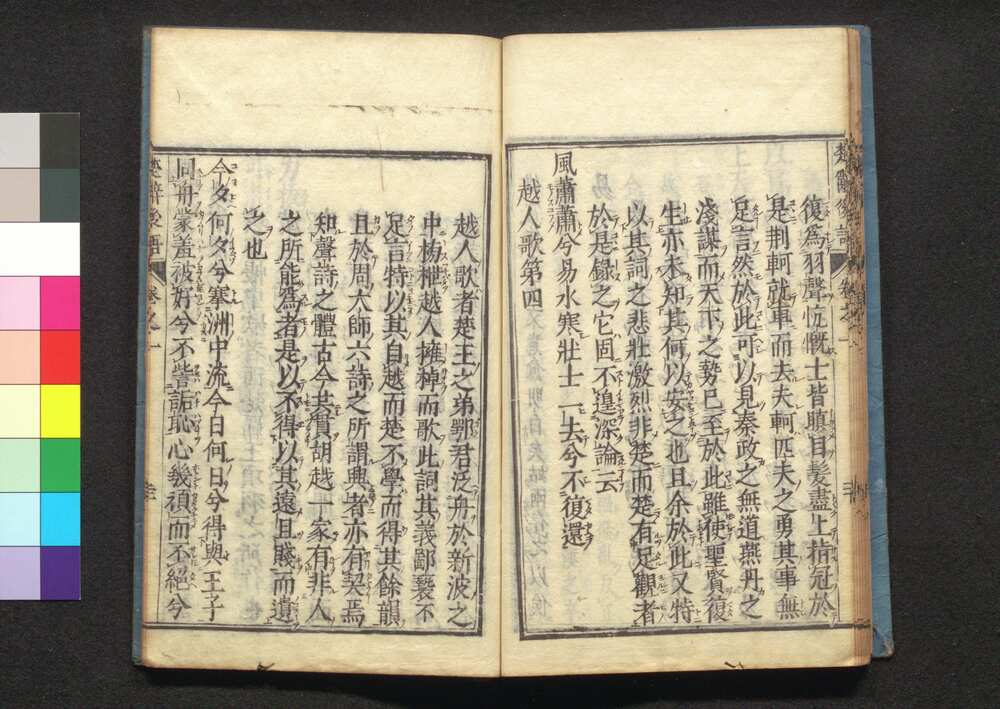 復為羽聲忼慨士皆瞋目髮盡上指冠於
是荆軻就車而去夫軻匹夫之勇其事無
足言然於此可以見秦政之無道燕丹之
淺謀而天下之勢已至於此雖使聖賢復
生亦未知其何以安之也且余於此又特
以其詞之悲壯激烈非楚而楚有足觀者
於是錄之它固不遑深論云
風蕭蕭兮易水寒壯士一去兮不復還
越人歌第四
越人歌者楚王之弟鄂君泛舟於新波之
中榜枻越人擁棹而歌此詞其義鄙褻不
足言特以其自越而楚不學而得其餘韻
且於周太師六詩之所謂興者亦有契焉
知聲詩之體古今共貫胡越一家有非人
之所能為者是以不得以其遠且賤而遺
之也
今夕何夕兮搴洲中流今日何日兮得與王子
同舟蒙羞被好兮不訾詬恥心幾頑而不絕兮
楚辭後語 卷之一